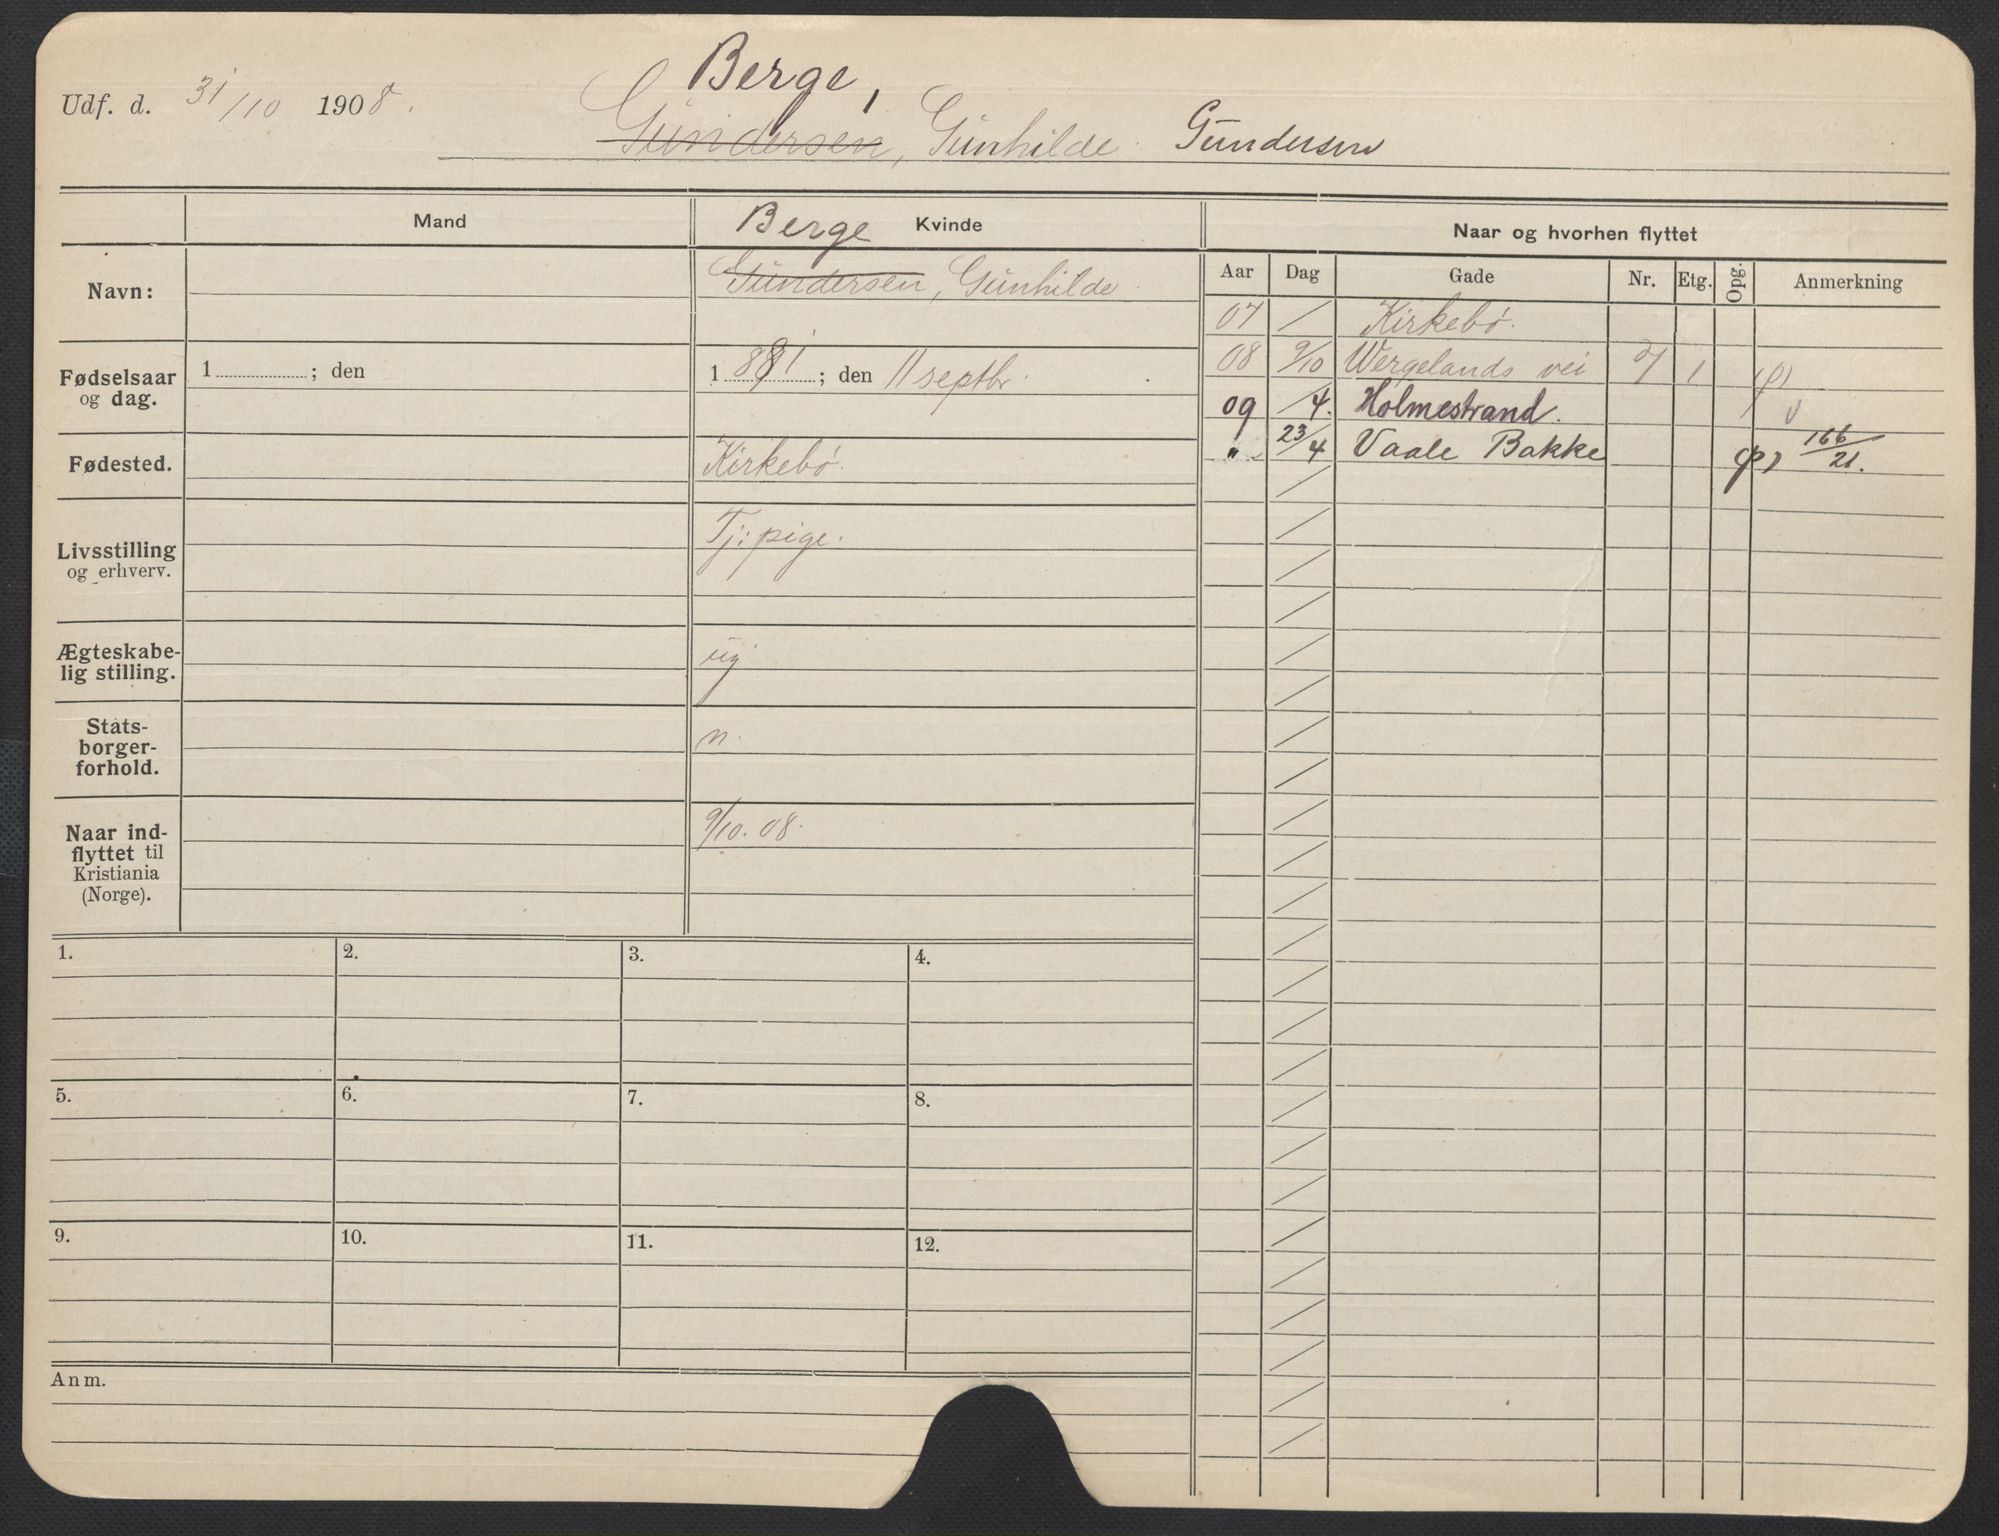 Udf. d. 31/10 1908.
Berge,
Gundersen, Gunhilde Gundersen
Mand
Berge Kvinde
Naar og hvorhen flyttet
Navn:
Gundersen, Gunhilde
Aar Dag Gade Nr. Etg. Opg. Anmerkning
07 / Kirkebø.
Fødselsaar og dag.
1 ; den
1881 ; den 11 septbr.
08 9/10 Wergelands vei 7 1 (p)
09 /4. Holmestrand.
" 23/4 Vaale Bakke (p) 166/21.
Fødested.
Kirkebø.
Livsstilling og erhverv.
Tj: pige.
Ægteskabe-
lig stilling.
ug
Stats-
borger-
forhold.
n.
Naar ind-
flyttet til
Kristiania
(Norge).
9/10. 08.
1. 2. 3. 4.
5. 6. 7. 8.
9. 10. 11. 12.
Anm.